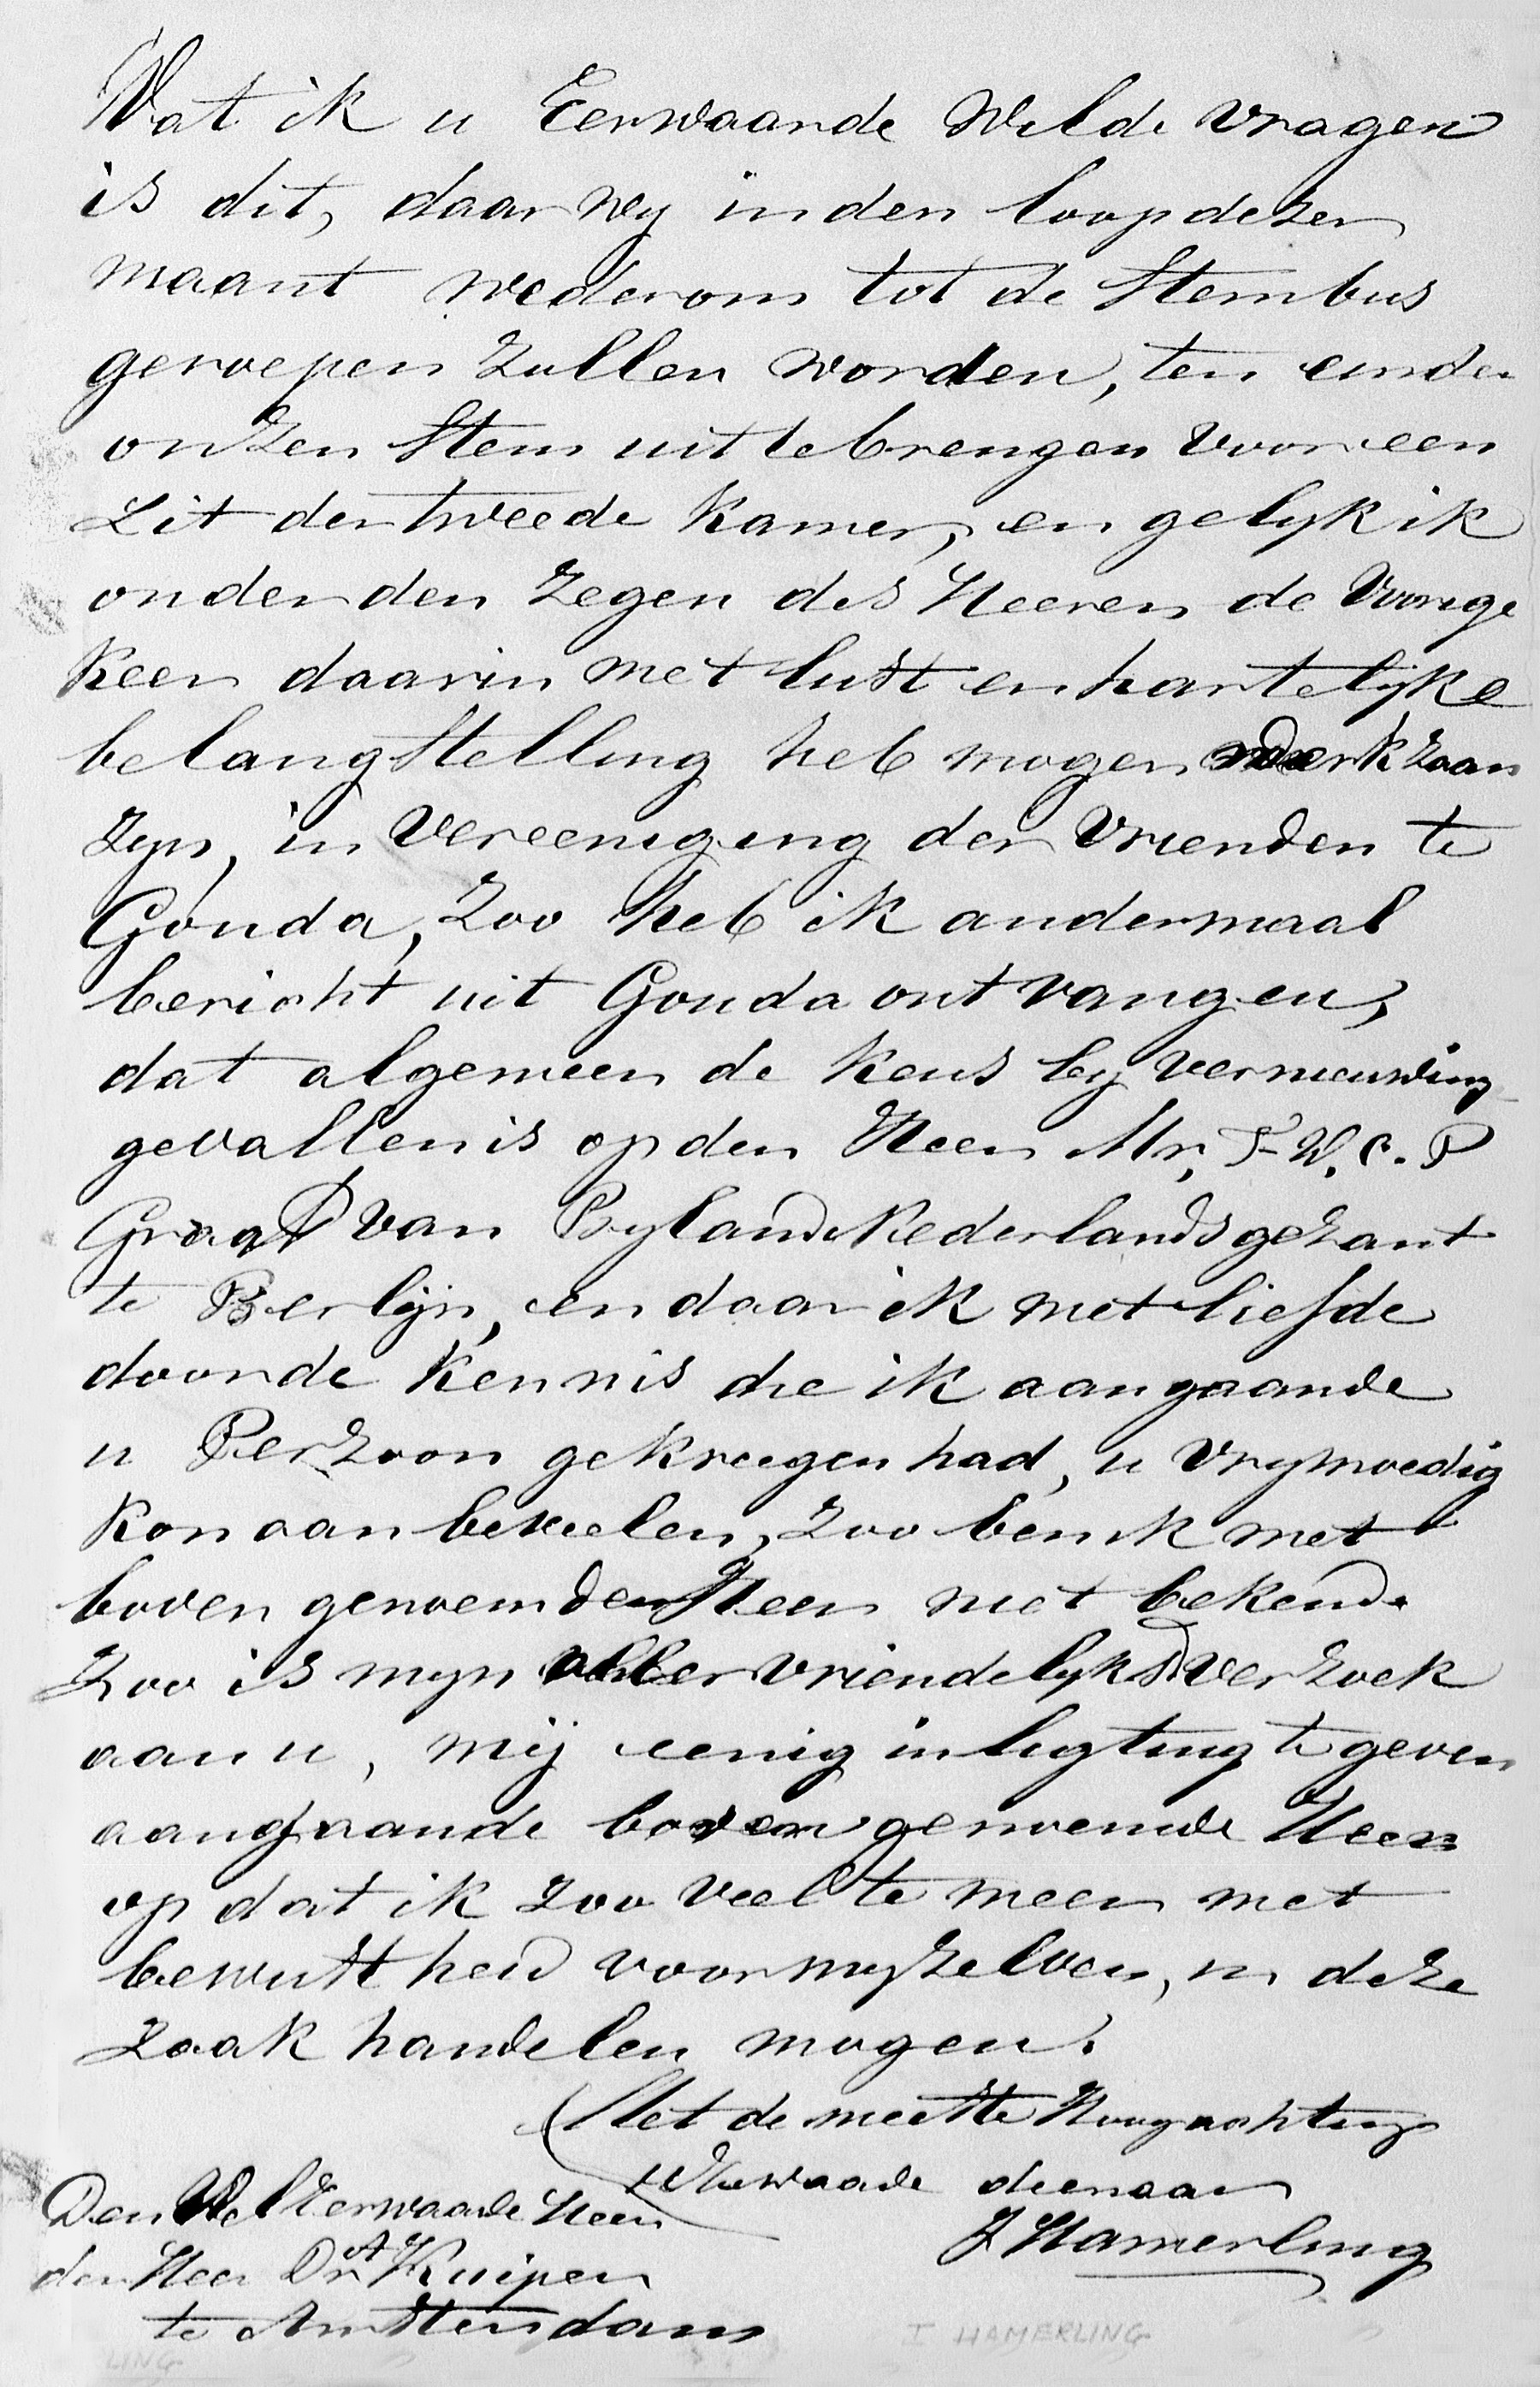 Wat ik u Eerwaarde Wilde vragen
is dit, daar wy in den loop dezer
maant wederom tot de Stembus
geroepen Zullen worden, ten einde
onzen Stem uit te brengen voor een
Lit der tweede Kamer, en gelyk ik
onder den Zegen des Heeren de Voorige
Keer daarin met lust en hartelijke
belangstelling heb mogen werkzaam
Zyn, in Vereeniging der Vrienden te
Gouda, Zoo heb ik andermaal
bericht uit Gouda ontvangen,
dat algemeen de Keus by vernieuwing
gevallen is op den Heer Mr. F. W. C. P
Graaf van Byland Nederlands gezant
te Berlijn, en daar ik met liefde
door de Kennis die ik aangaande
u Perzoon gekreegen had, u Vrymoedig
Kon aan beveelen, Zoo ben ik met
boven genoemden Heer niet bekend
Zoo is myn aller vriendelykst verzoek
aan u, mij eenig inligting te geven
aangaande boven genoemde Heer
op dat ik zoo veel te meer met
bewustheid voor myzelven, in deze
Zaak handelen mogen.
Met de meeste Hoogachting
UEerwaarde dienaar
J Hamerling
Den Wel Eerwaarde Heer
den Heer Dr. A Kuiper
te Amsterdam
I HAMERLING
LING